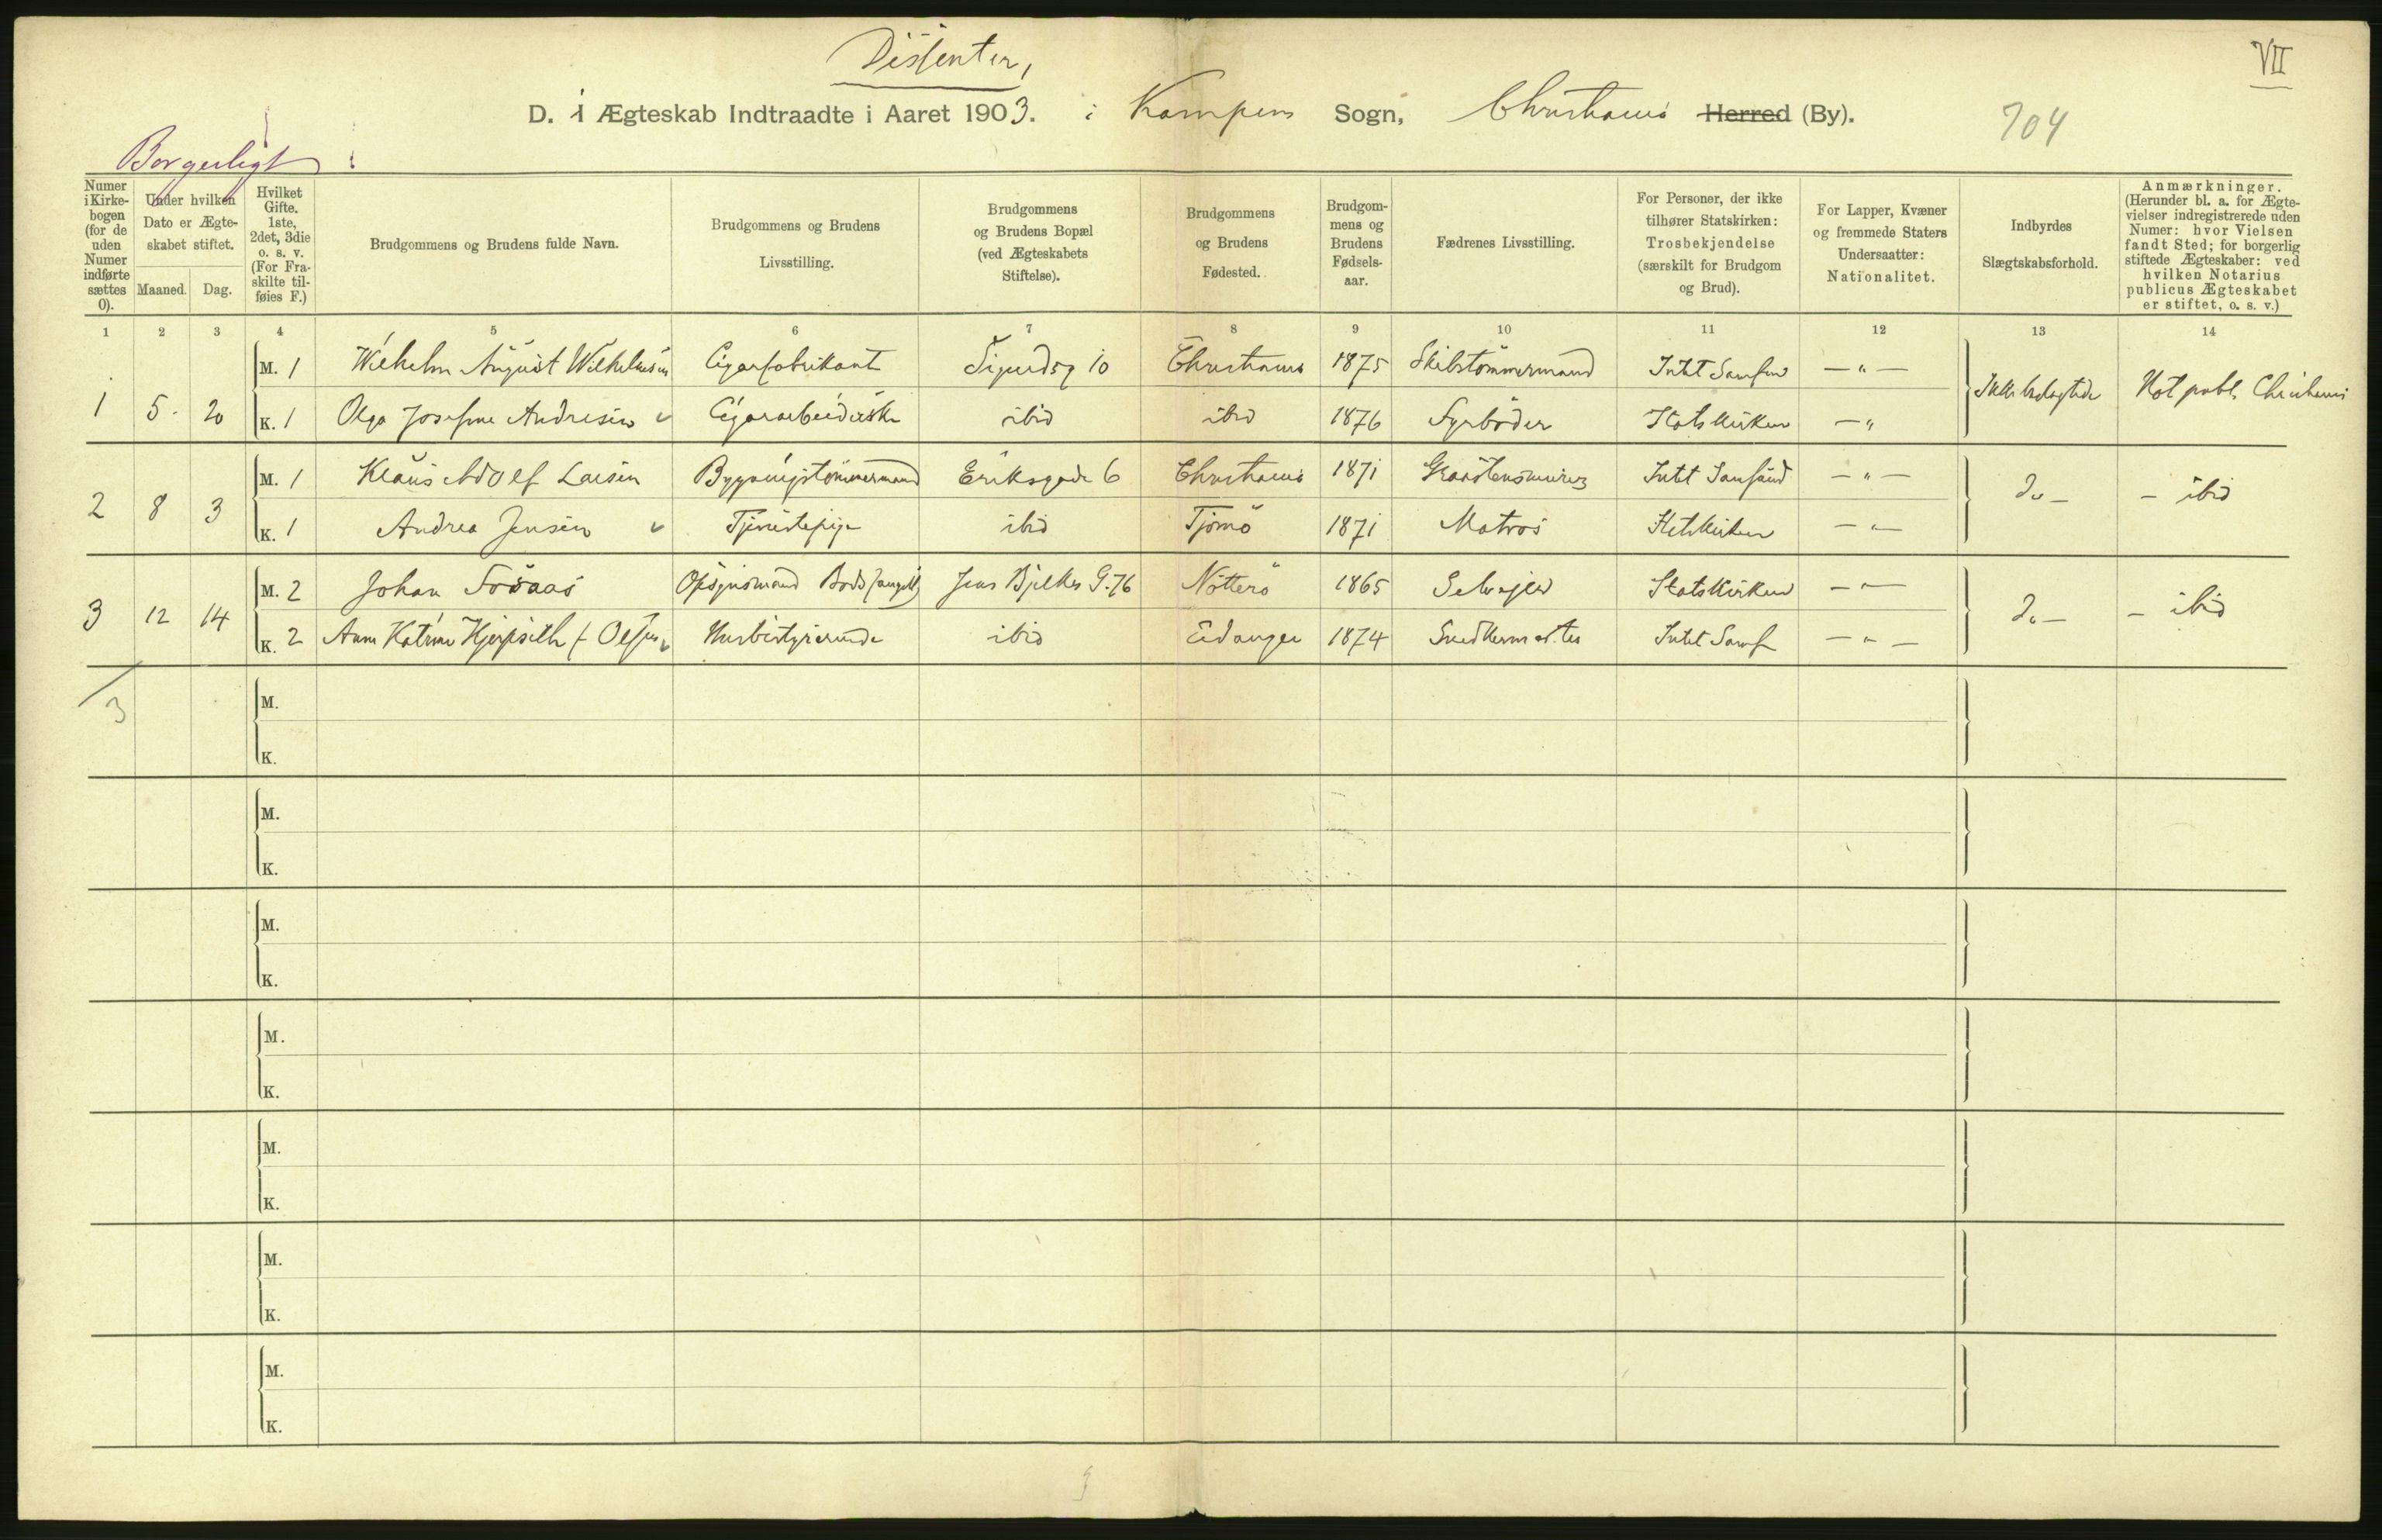 Dissenter,
VII
D. i Ægteskab Indtraadte i Aaret 1903. i Kampens Sogn, Christiania Herred (By).
704
Borgerligt
Numer i Kirkebogen (for de uden Numer indførte sættes 0).
Under hvilken Dato er Ægteskabet stiftet.
Maaned. Dag.
Hvilket Gifte. 1ste, 2det, 3die o. s. v. (For Fraskilte tilføies F.)
Brudgommens og Brudens fulde Navn.
Brudgommens og Brudens Livsstilling.
Brudgommens og Brudens Bopæl (ved Ægteskabets Stiftelse).
Brudgommens og Brudens Fødested.
Brudgommens og Brudens Fødselsaar.
Fædrenes Livsstilling.
For Personer, der ikke tilhører Statskirken: Trosbekjendelse (særskilt for Brudgom og Brud).
For Lapper, Kvæner og fremmede Staters Undersaatter: Nationalitet.
Indbyrdes Slægtskabsforhold.
Anmærkninger. (Herunder bl. a. for Ægtevielser indregistrerede uden Numer: hvor Vielsen fandt Sted; for borgerlig stiftede Ægteskaber: ved hvilken Notarius publicus Ægteskabet er stiftet, o. s. v.)
1 2 3 4 5 6 7 8 9 10 11 12 13 14
M. 1 Wilhelm August Wilhelmsen Cigarfabrikant Sigurdsg 10 Christiania 1875 Skibstömmermand Intet Samfun — " —
1 5. 20 Ikke beslægtede Not publ. Christiania
K. 1 Olga Josefine Andresen Cigararbeiderske ibid ibid 1876 Fyrböder Statskirken — "
M. 1 Klaus Adolf Larsen Bygningstömmermand Eriksgade 6 Christiania 1871 Graastensmurer Intet Samfund — " —
2 8 3 Do — — ibid
K. 1 Andrea Jensen Tjenestepige ibid Tjömö 1871 Matros Statskirken — " —
M. 2 Johan Fosaas Opsynsmand Bodsfængslet Jens Bjelkes G. 76 Nötterö 1865 Selveier Statskirken — " —
3 12 14 Do — — ibid
K. 2 Anna Katrine Hjerpseth f. Olsen Husbestyrerinde ibid Eidanger 1874 Snedkermester Intet Samf — " —
3
M.
K.
M.
K.
M.
K.
M.
K.
M.
K.
M.
K.
M.
K.
3